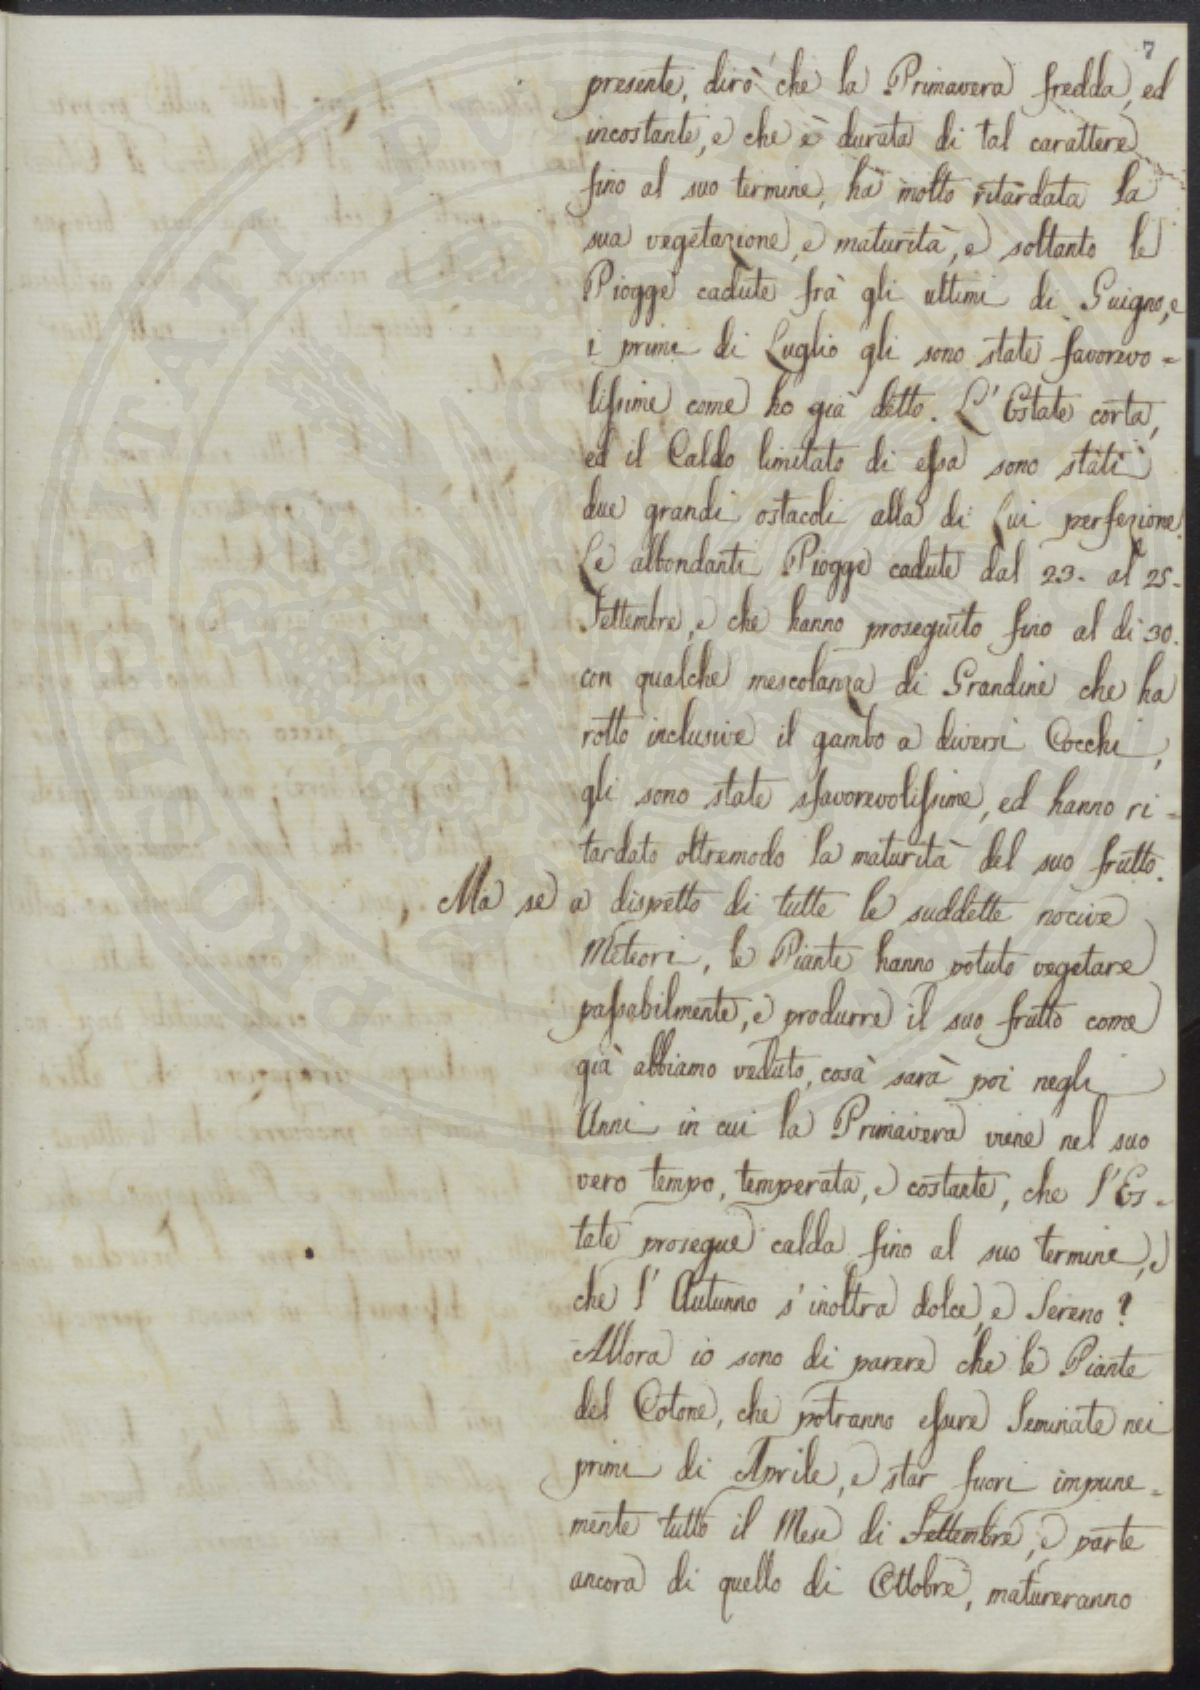 7
presente, dirò che la Primavera fredda, ed
incostante, e che è durata di tal carattere
fino al suo termine, ha molto ritardata la
sua vegetazione, e maturità, e soltanto le
Piogge cadute frà gli ultimi di Guigno, e
i primi di Luglio gli sono state favorevo=
lissime come ho già detto. L'Estate corta,
ed il Caldo limitato di essa sono stati
due grandi ostacoli alla di Lui perfezione.
Le abbondanti Piogge cadute dal 23. al 25.
Settembre, e che hanno proseguito fino al di 30.
con qualche mescolanza di Grandine che ha
rotto inclusive il gambo a diversi Cocchi,
gli sono state sfavorevolissime, ed hanno ri=
tardato oltremodo la maturità del suo frutto.
Ma se a dispetto di tutte le suddette nocive
Meteori, le Piante hanno potuto vegetare
passabilmente, e produrre il suo frutto come
già abbiamo veduto, cosà sarà poi negli
Anni in cui la Primavera viene nel suo
vero tempo, temperata, e costante, che l'Es=
tate prosegue calda fino al suo termine, e
che l'Autunno s'inoltra dolce, e Sereno?
Allora io sono di parere che le Piante
del Cotone, che potranno essere Seminate nei
primi di Aprile, e star fuori impune=
mente tutto il Mese di Settembre, e parte
ancora di quello di Ottobre, matureranno